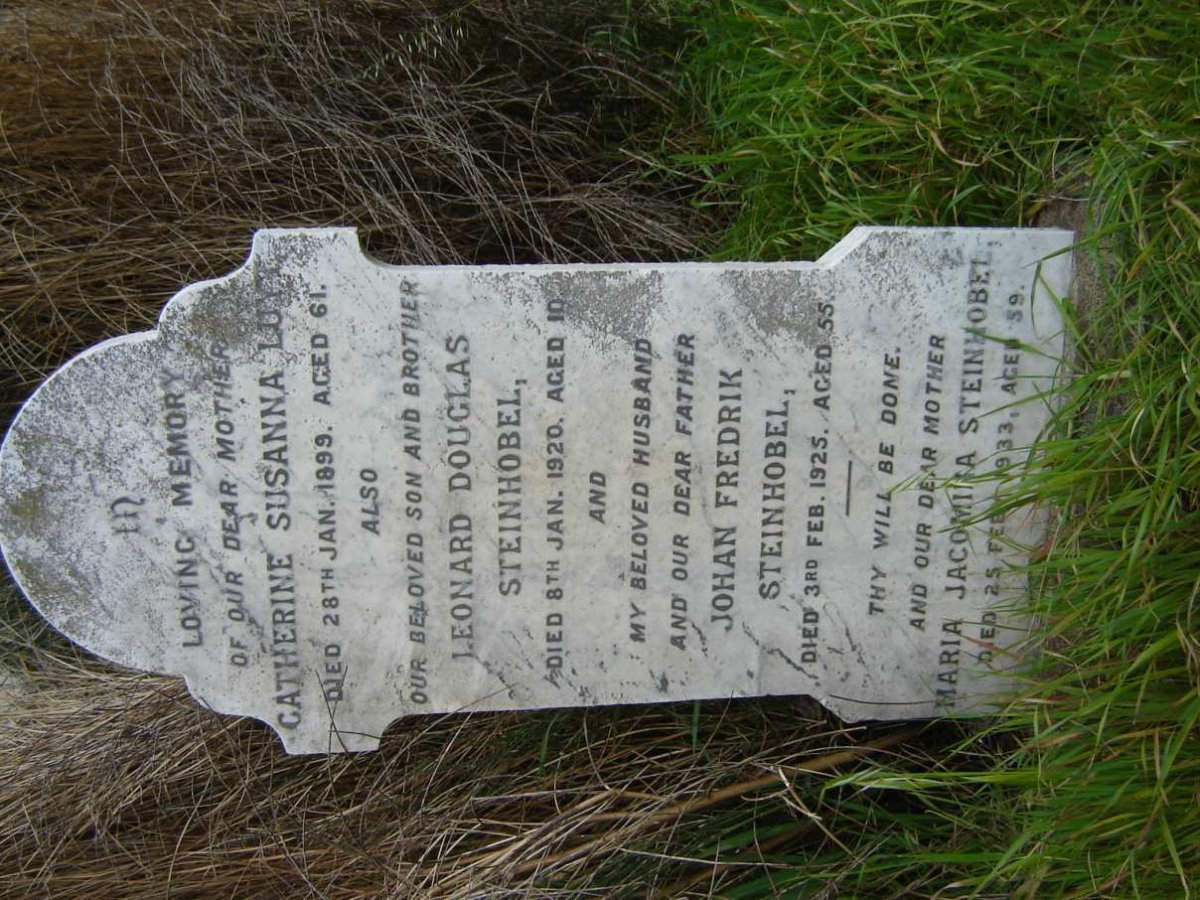 IN
LOVING MEMORY
OF OUR DEAR MOTHER
CATHERINE SUSANNA
DIED 28TH JAN. 1899. AGED 61.
ALSO
OUR BELOVED SON AND BROTHER
LEONARD DOUGLAS
STEINHOBEL,
DIED 8TH JAN. 1920. AGED 10
AND
MY BELOVED HUSBAND
AND OUR DEAR FATHER
JOHAN FREDRIK
STEINHOBEL,
DIED 3RD FEB. 1925. AGED 55.
THY WILL BE DONE.
AND OUR DEAR MOTHER
MARIA JACOMINA STEINHOBEL,
DIED 25 FEB 1933, AGED